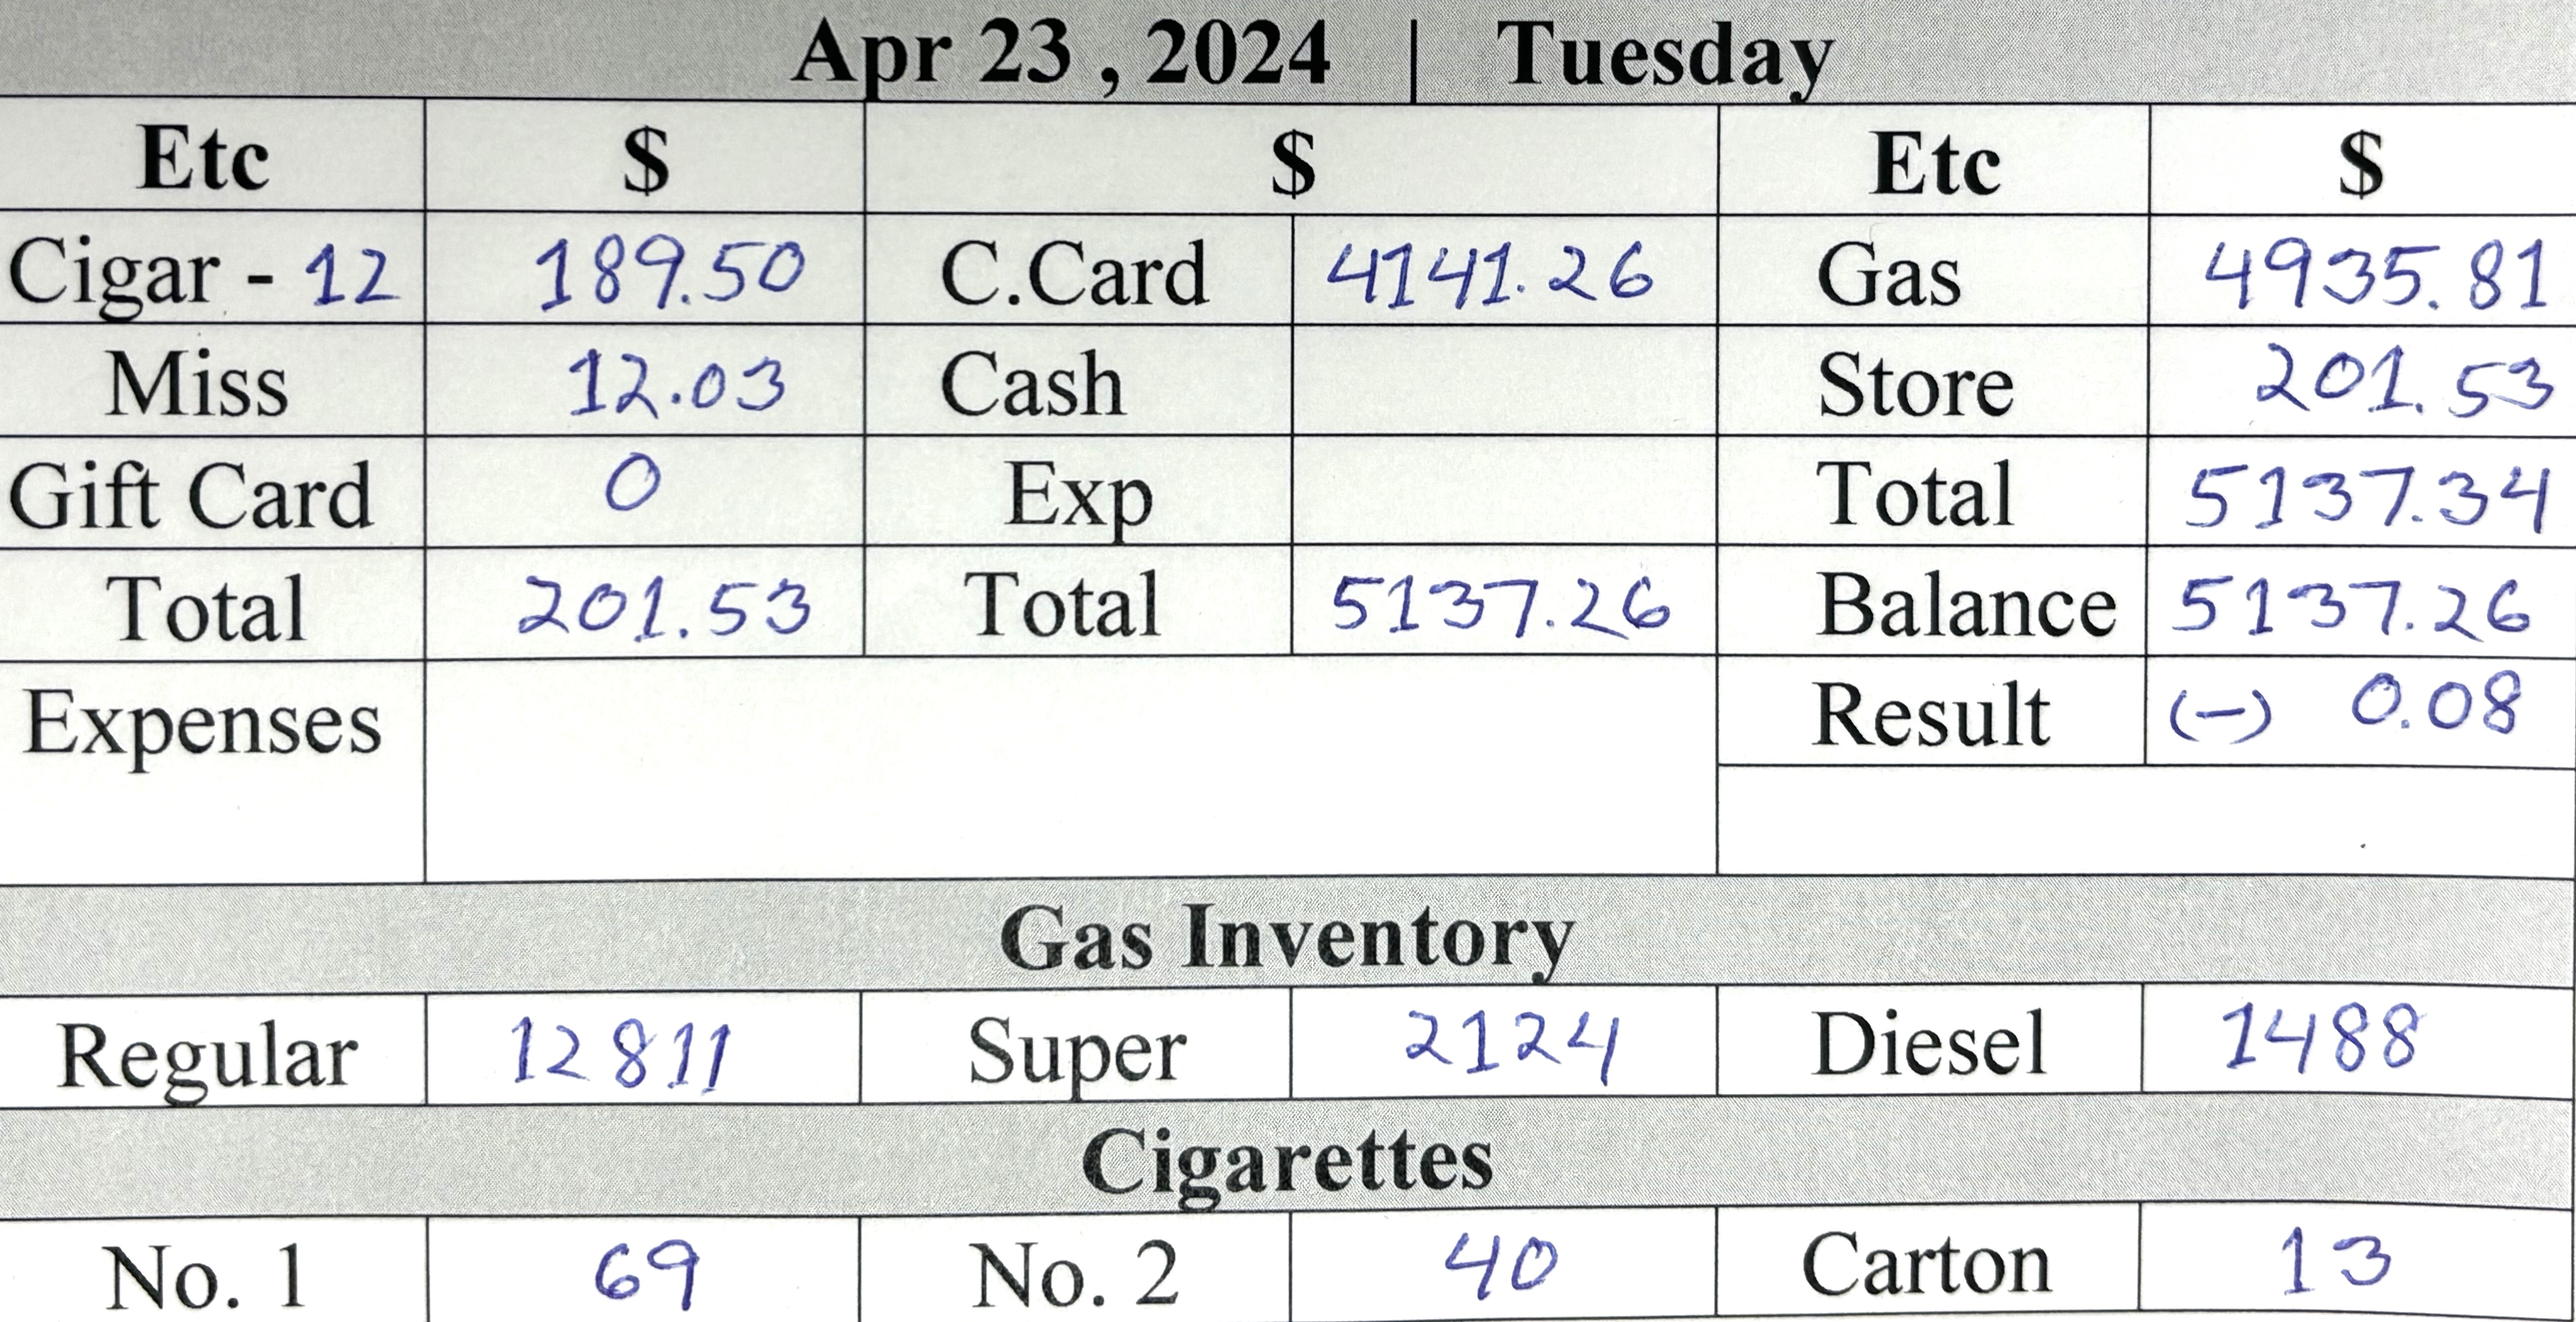 Apr 23 , 2024 | Tuesday
Etc $ $ Etc $
Cigar - 12 189.50 C.Card 4141.26 Gas 4935.81
Miss 12.03 Cash Store 201.53
Gift Card 0 Exp Total 5137.34
Total 201.53 Total 5137.26 Balance 5137.26
Expenses Result (-) 0.08
Gas Inventory
Regular 12811 Super 2124 Diesel 1488
Cigarettes
No. 1 69 No. 2 40 Carton 13